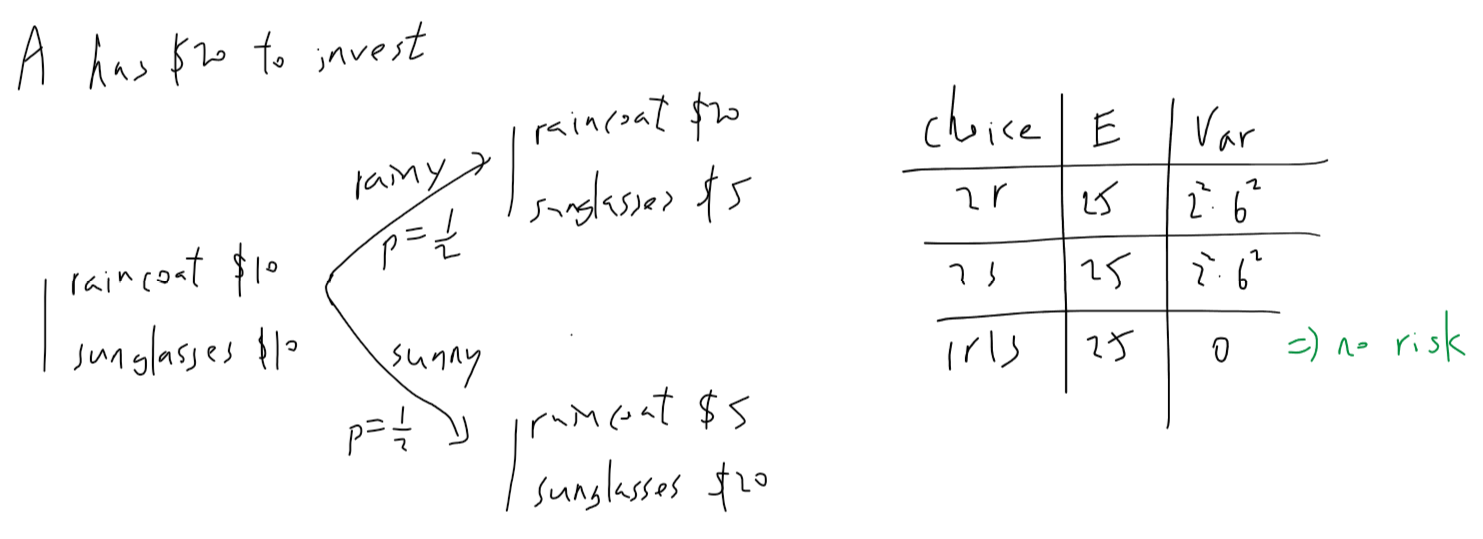 A has $20 to invest
rainy
p = 1/2
raincoat $20
sunglasses $5
raincoat $10
sunglasses $10
sunny
p = 1/2
raincoat $5
sunglasses $20
choice | E | Var
2r | 25 | 2² · 6²
2s | 25 | 2² · 6²
1r1s | 25 | 0 => no risk